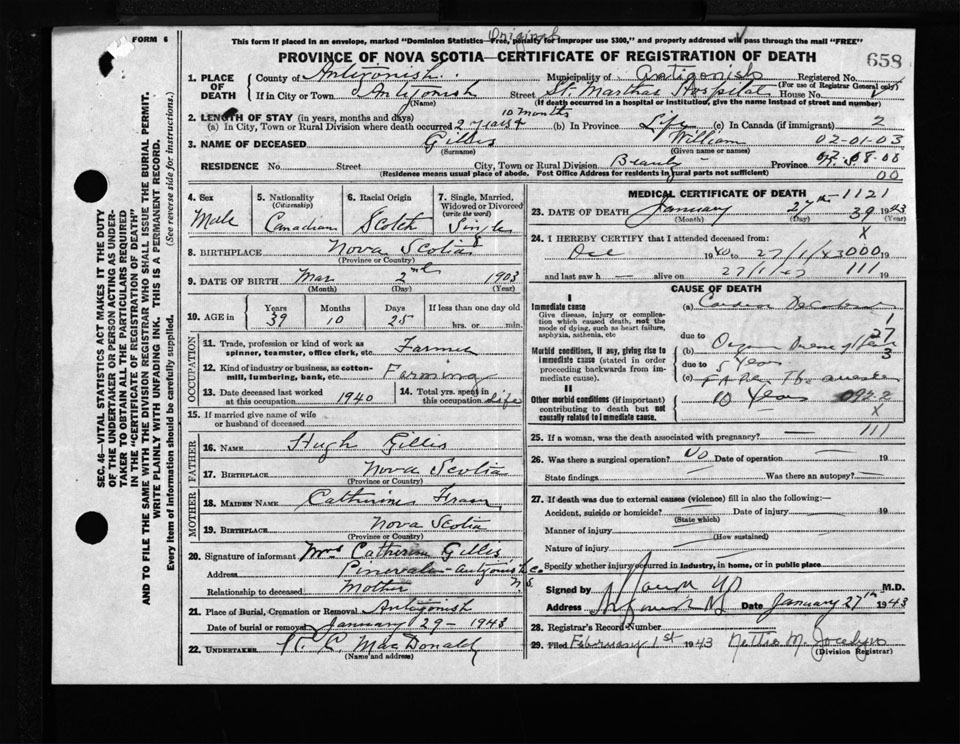 FORM 6
Original
This form if placed in an envelope, marked "Dominion Statistics—Free, penalty for improper use $300," and properly addressed will pass through the mail "FREE"
PROVINCE OF NOVA SCOTIA—CERTIFICATE OF REGISTRATION OF DEATH
658
1. PLACE OF DEATH County of Antigonish Municipality of Antigonish Registered No.
(For use of Registrar General only)
If in City or Town Antigonish Street St. Marthas Hospital House No.
(Name) (If death occurred in a hospital or institution, give the name instead of street and number)
2. LENGTH OF STAY (in years, months and days) 10 months
(a) In City, Town or Rural Division where death occurred 2 years + (b) In Province Life (c) In Canada (if immigrant) 2
3. NAME OF DECEASED Gillis William 02-01-03
(Surname) (Given name or names)
RESIDENCE No. Street City, Town or Rural Division Beauly Province 08-00
(Residence means usual place of abode. Post Office Address for residents in rural parts not sufficient) 00
4. Sex 5. Nationality (Citizenship) 6. Racial Origin 7. Single, Married, Widowed or Divorced (write the word)
Male Canadian Scotch Single
8. BIRTHPLACE Nova Scotia
(Province or Country)
9. DATE OF BIRTH Mar 2nd 1903
(Month) (Day) (Year)
10. AGE in Years Months Days If less than one day old
39 10 25 hrs. or min.
OCCUPATION
11. Trade, profession or kind of work as spinner, teamster, office clerk, etc. Farmer
12. Kind of industry or business, as cotton-mill, lumbering, bank, etc. Farming
13. Date deceased last worked at this occupation 1940 14. Total yrs. spent in this occupation Life
15. If married give name of wife or husband of deceased
FATHER
16. NAME Hugh Gillis
17. BIRTHPLACE Nova Scotia
(Province or Country)
MOTHER
18. MAIDEN NAME Catherine Fraser
19. BIRTHPLACE Nova Scotia
(Province or Country)
20. Signature of informant Mrs Catherine Gillis
Address Pinevale - Antigonish Co N.S.
Relationship to deceased Mother
21. Place of Burial, Cremation or Removal Antigonish
Date of burial or removal January 29 - 1943
22. UNDERTAKER MacDonald
(Name and address)
MEDICAL CERTIFICATE OF DEATH -1121
23. DATE OF DEATH January 27th 39 1943
(Month) (Day)
X
24. I HEREBY CERTIFY that I attended deceased from:
Dec 1940 to 27/1/43 000
and last saw h alive on 27/1/43 111 19
CAUSE OF DEATH
I
Immediate cause
Give disease, injury or complication which caused death, not the mode of dying, such as heart failure, asphyxia, asthenia, etc
(a)
1
27
3
due to
(b)
Morbid conditions, if any, giving rise to immediate cause (stated in order proceeding backwards from immediate cause).
due to 5 Years
(c)
II
Other morbid conditions (if important) contributing to death but not causally related to immediate cause.
10 Years
X
25. If a woman, was the death associated with pregnancy? — 111
26. Was there a surgical operation? No Date of operation — 19
State findings — Was there an autopsy? —
27. If death was due to external causes (violence) fill in also the following:—
Accident, suicide or homicide? Date of injury 19
(State which)
Manner of injury
(How sustained)
Nature of injury
Specify whether injury occurred in Industry, in home, or in public place
Signed by M.D.
Address Date January 27th 1943
28. Registrar's Record Number
29. Filed February 1st 1943 Nettie M. Jocelyn
(Division Registrar)
SEC. 46—VITAL STATISTICS ACT MAKES IT THE DUTY OF THE UNDERTAKER OR PERSON ACTING AS UNDERTAKER TO OBTAIN ALL THE PARTICULARS REQUIRED IN THE "CERTIFICATE OF REGISTRATION OF DEATH"
AND TO FILE THE SAME WITH THE DIVISION REGISTRAR WHO SHALL ISSUE THE BURIAL PERMIT.
WRITE PLAINLY WITH UNFADING INK. THIS IS A PERMANENT RECORD.
Every item of information should be carefully supplied. (See reverse side for instructions.)